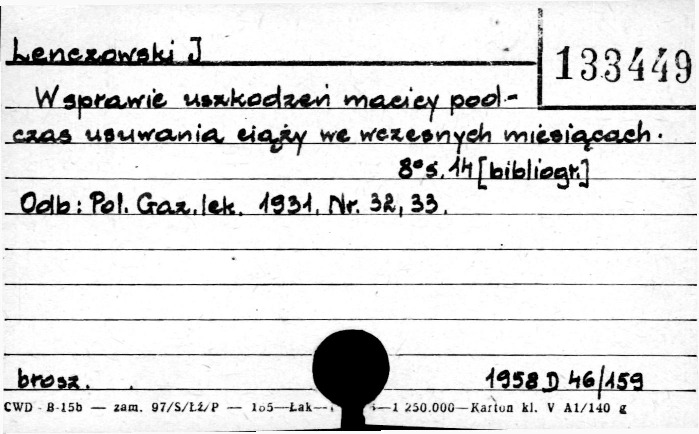 Lenczowski J
133449
W sprawie uszkodzeń macicy pod-
czas usuwania ciąży we wczesnych miesiącach.
8° s. 14 [bibliogr.]
Odb: Pol. Gaz. lek. 1931. Nr. 32, 33.
brosz.
1958 D 46/159
CWD - B-15b — zam. 97/S/Łż/P — Łak — 1 250.000 — Karton kl. V A1/140 g